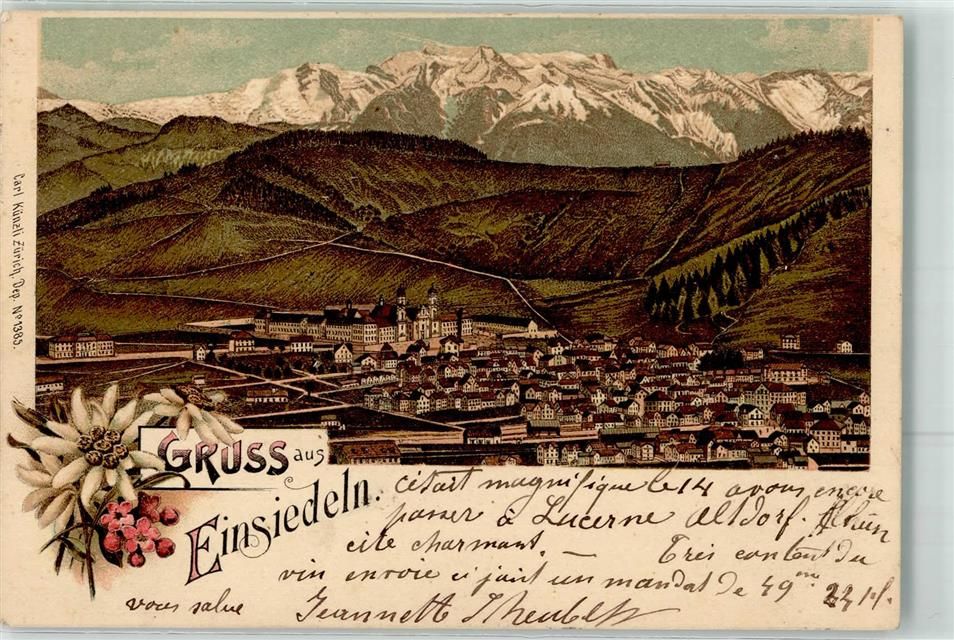 Carl Künzli Zürich, Dep. Nº 1385.
GRUSS aus
Einsiedeln.
c'était magnifique le 14 avons encore
passer à Lucerne Altdorf.
cité charmant. — Très content du
vin envoie ci joint un mandat de 49
vous salue Jeannette